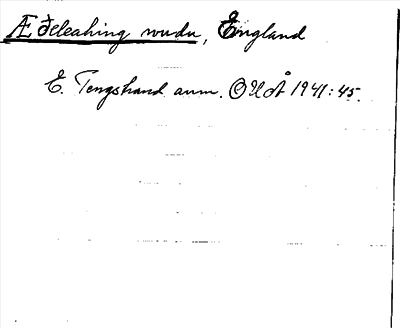 Æðeleahing wudu, England
E. Tengstrand anm. OUÅ 1941:45.